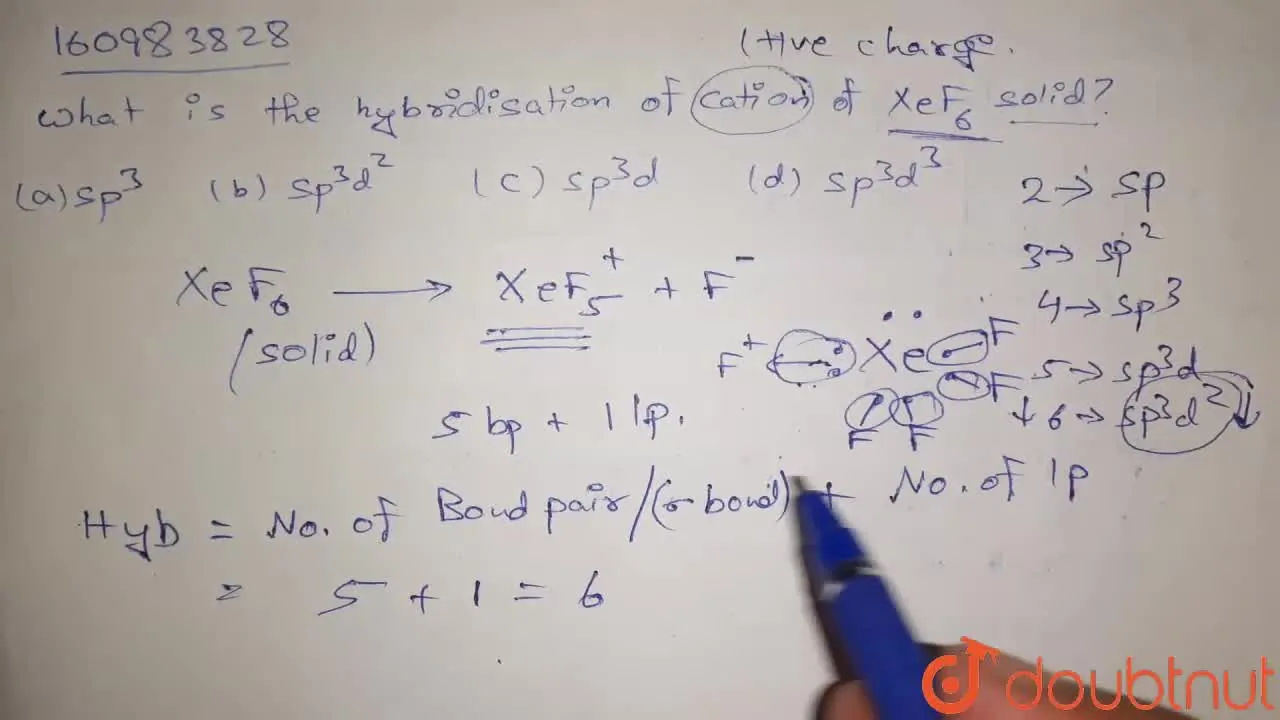 160983828
(+)ive charge.
What is the hybridisation of cation of XeF6 solid?
(a) sp³ (b) sp³d² (c) sp³d (d) sp³d³
2 → sp
3 → sp²
4 → sp³
5 → sp³d
6 → sp³d²
XeF6 → XeF5⁺ + F⁻
(solid)
F⁺ Xe F
F
F F
5 bp + 1 lp.
Hyb = No. of Bond pair/(σ bond) + No. of lp
= 5 + 1 = 6
doubtnut